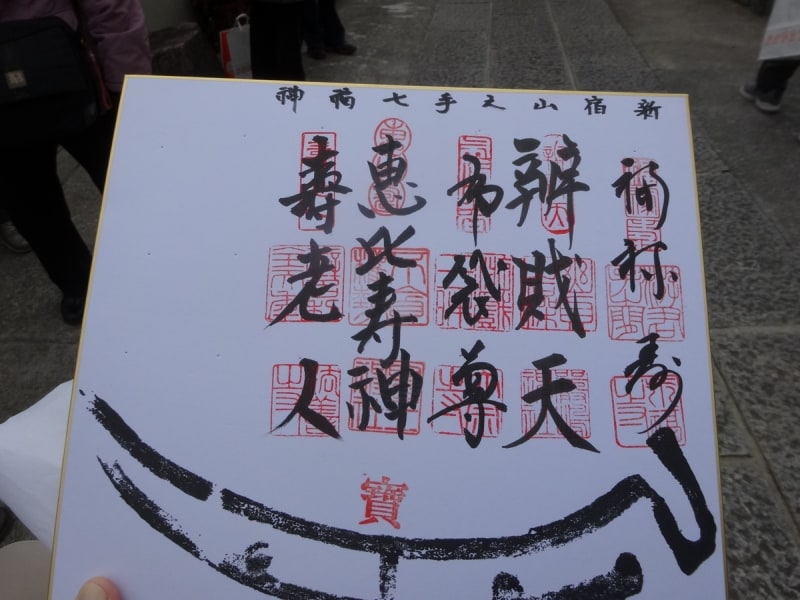 新宿山之手七福神
福禄寿
辨財天
布袋尊
恵比寿神
壽老人
寶